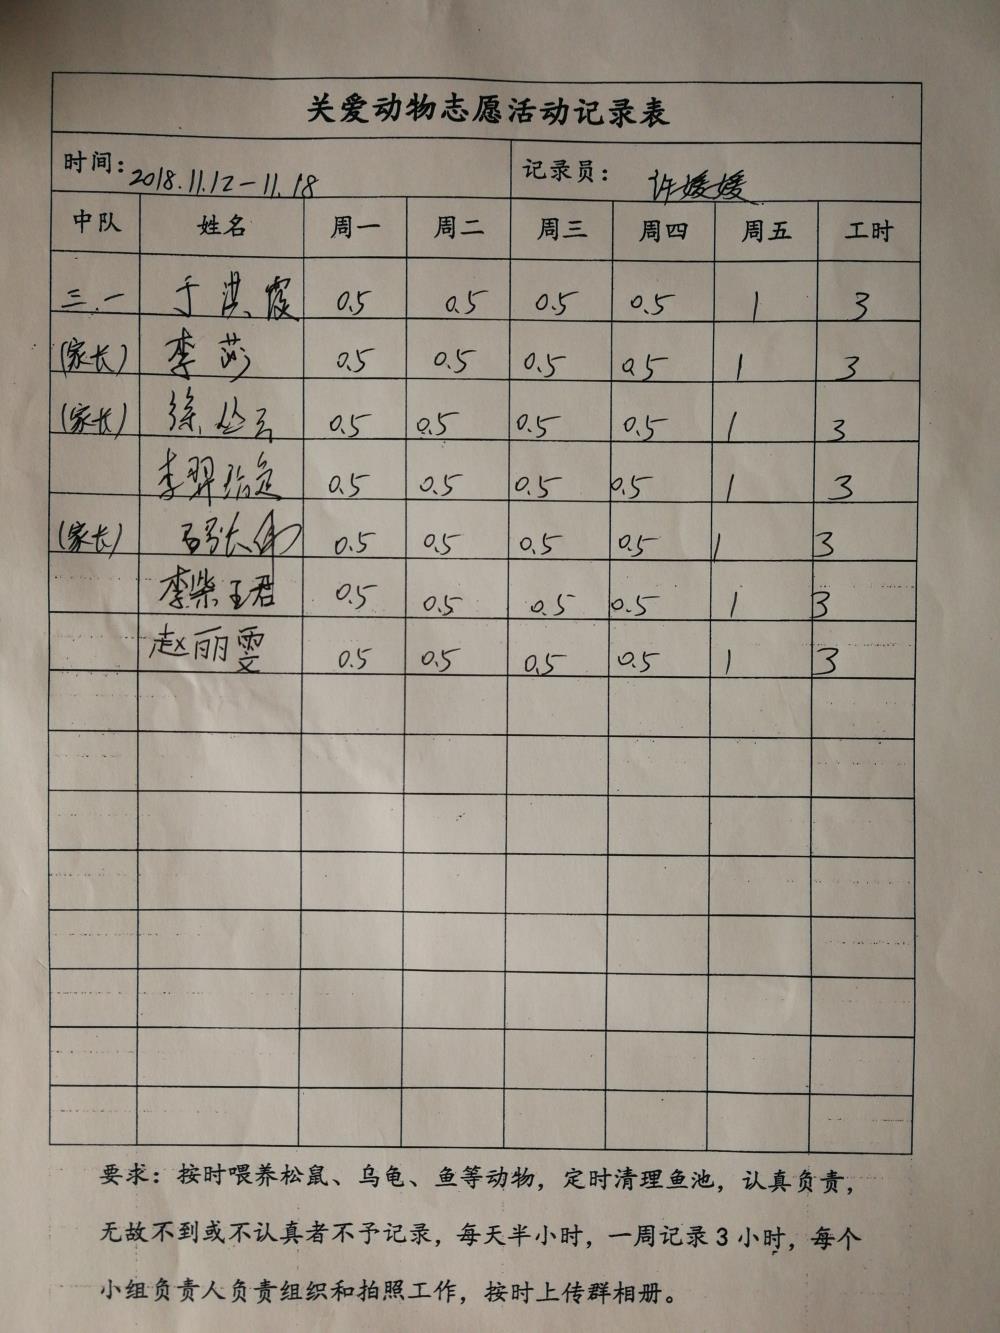 关爱动物志愿活动记录表
时间：2018.11.12-11.18 记录员：许媛媛
中队 姓名 周一 周二 周三 周四 周五 工时
三.一 于洪霞 0.5 0.5 0.5 0.5 1 3
(家长) 李莎 0.5 0.5 0.5 0.5 1 3
(家长) 徐丛云 0.5 0.5 0.5 0.5 1 3
李羿 0.5 0.5 0.5 0.5 1 3
(家长) 0.5 0.5 0.5 0.5 1 3
李柴珺 0.5 0.5 0.5 0.5 1 3
赵丽雯 0.5 0.5 0.5 0.5 1 3
要求：按时喂养松鼠、乌龟、鱼等动物，定时清理鱼池，认真负责，
无故不到或不认真者不予记录，每天半小时，一周记录3小时，每个
小组负责人负责组织和拍照工作，按时上传群相册。